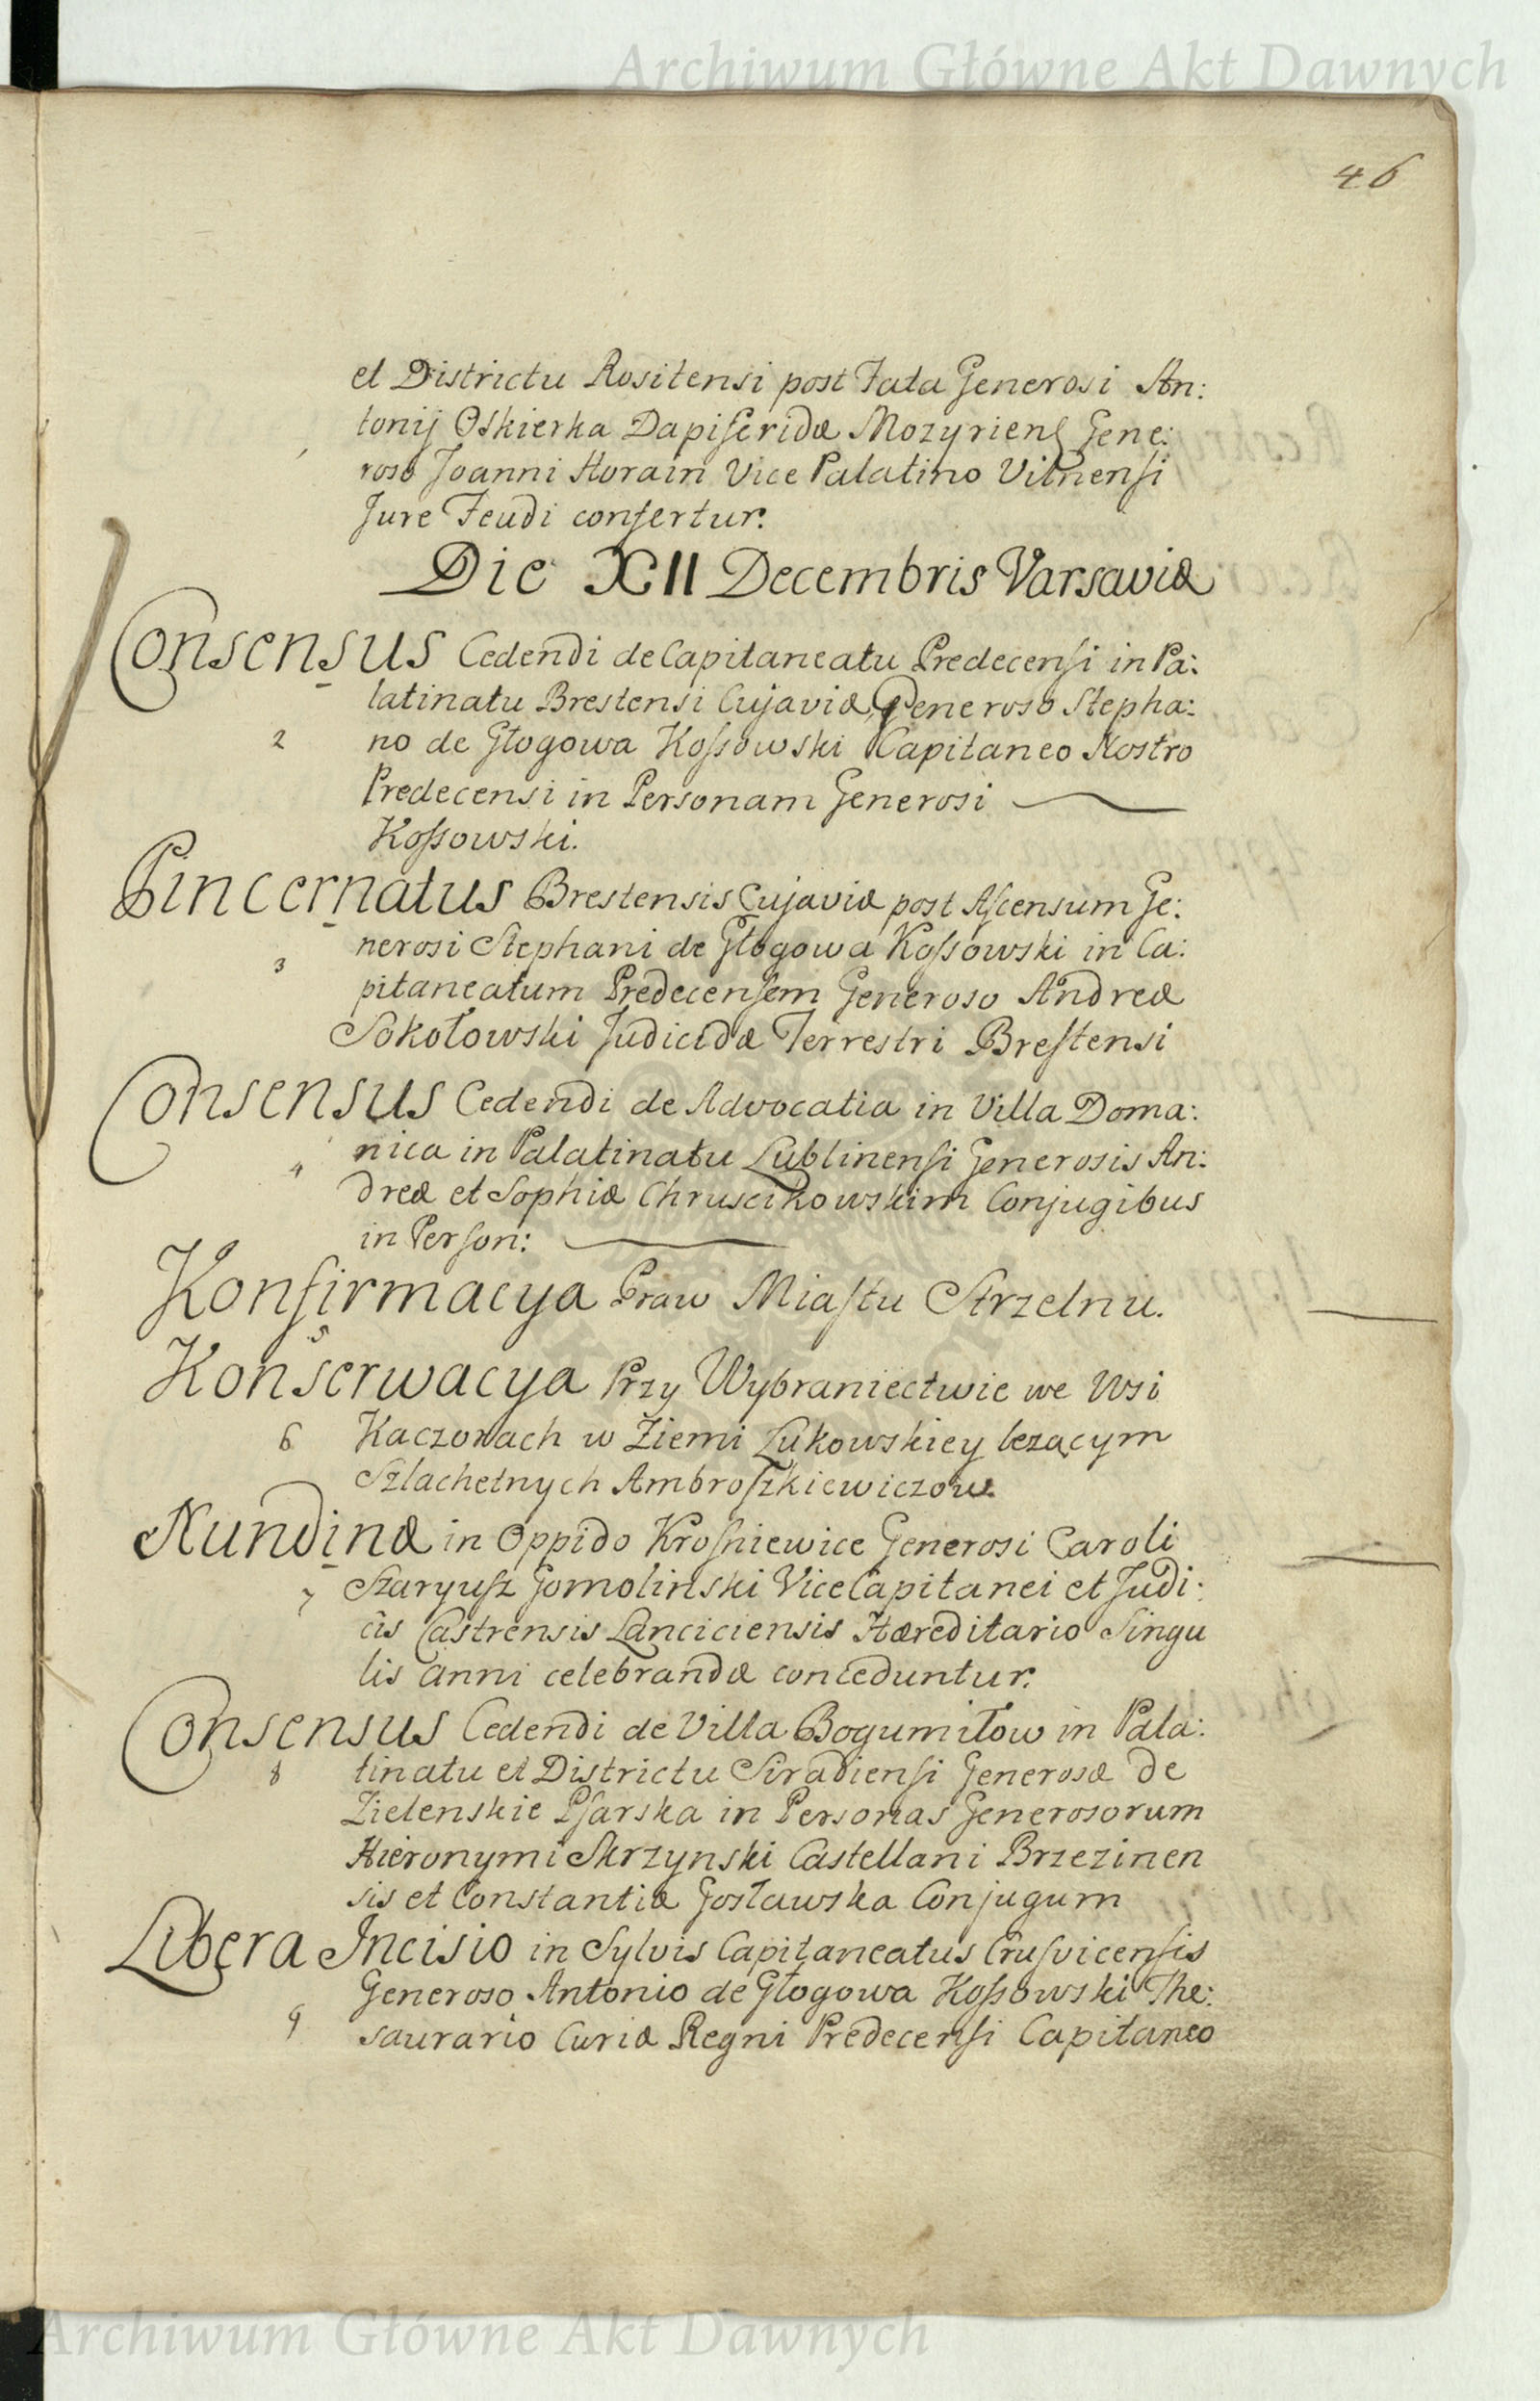 Archiwum Główne Akt Dawnych
46
et Districtu Rositensi post Fata Generosi An:
tonij Oskierka Dapiferidæ Mozyrien Gene:
roso Joanni Horain Vice Palatino Vilnensi
Jure Feudi confertur.
Die XII Decembris Varsaviæ
Consensus Cedendi de Capitaneatu Predecensi in Pa:
latinatu Brestensi Cujaviæ, Generoso Stepha:
2 no de Głogowa Kossowski Capitaneo Nostro
Predecensi in Personam Generosi
Kossowski.
Pincernatus Brestensis Cujaviæ post Ascensum Ge:
3 nerosi Stephani de Głogowa Kossowski in Ca:
pitaneatum Predecensem Generoso Andreæ
Sokołowski Judicidæ Terrestri Brestensi
Consensus Cedendi de Advocatia in Villa Doma:
4 nica in Palatinatu Lublinensi Generosis An:
dreæ et Sophiæ Chruscikowskim Conjugibus
in Person:
Konfirmacya Praw Miastu Strzelnu.
5
Konserwacya Przy Wybraniectwie we Wsi
6 Kaczorach w Ziemi Lukowskiey lezącym
Szlachetnych Ambroszkiewiczow.
Nundinæ in Oppido Krosniewice Generosi Caroli
7 Szaryusz Gomolinski ViceCapitanei et Judi:
cis Castrensis Lanciciensis Hæreditario Singu
lis anni celebrandæ conceduntur.
Consensus Cedendi de Villa Bogumiłow in Pala:
8 tinatu et Districtu Siradiensi Generosæ de
Zielenskie Psarska in Personas Generosorum
Hieronymi Skrzynski Castellani Brzezinen
sis et Constantiæ Gosławska Conjugum
Libera Incisio in Sylvis Capitaneatus Crusvicensis
Generoso Antonio de Głogowa Kossowski The:
9 saurario Curiæ Regni Predecensi Capitaneo
Archiwum Główne Akt Dawnych